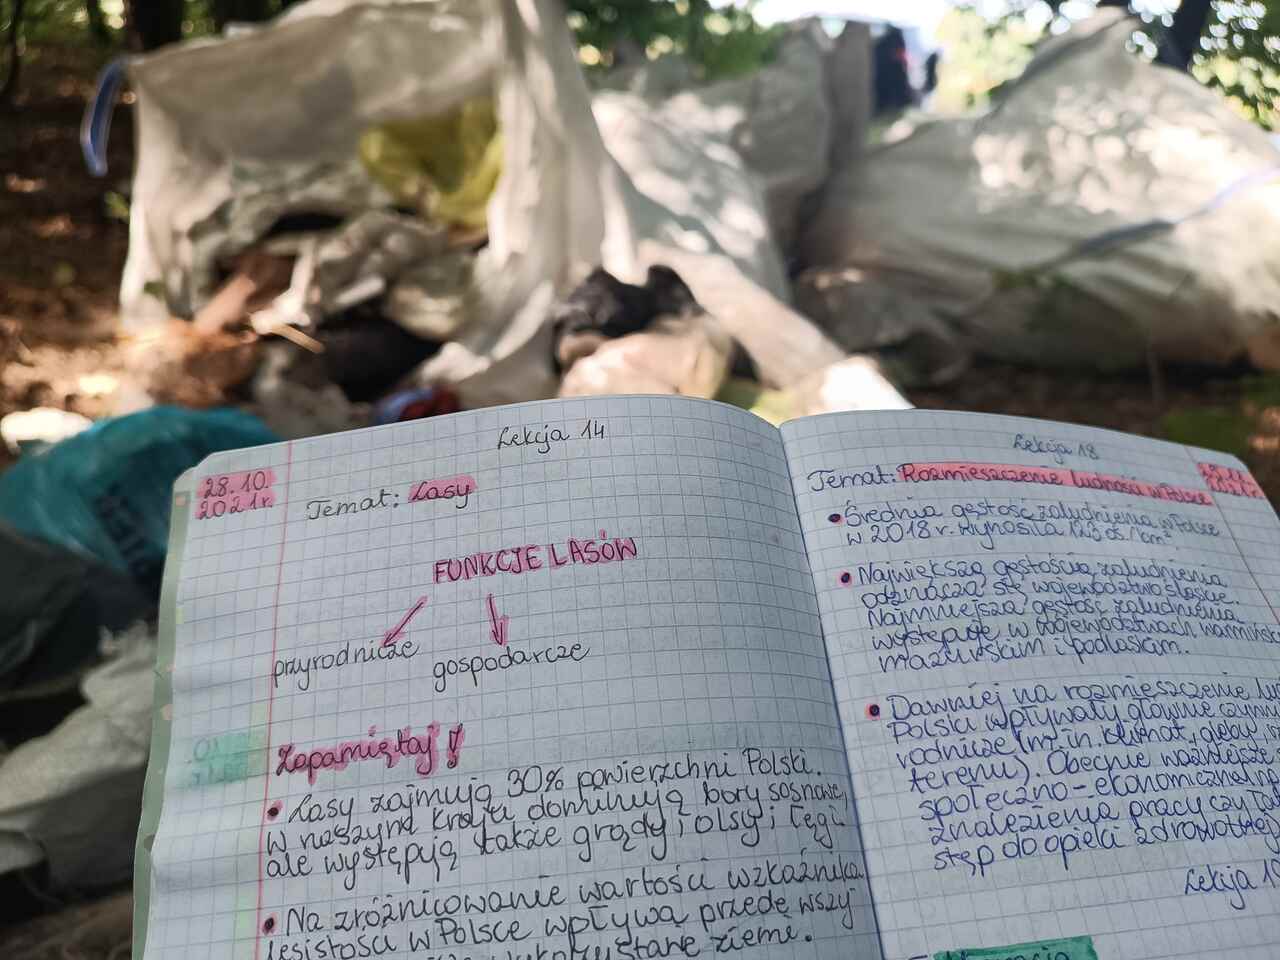 Lekcja 14
28.10.
2021r.
Temat: Lasy
FUNKCJE LASÓW
przyrodnicze
gospodarcze
Zapamiętaj!
• Lasy zajmują 30% powierzchni Polski.
W naszym kraju dominują bory sosnowe,
ale występują także grądy, olsy i łęgi
• Na zróżnicowanie wartości wzkaźnika
lesistości w Polsce wpływa przede wszy
ziemi.
Lekcja 18
Temat: Rozmieszczenie ludności w Polsce
• Średnia gęstość zaludnienia w Polsce
w 2018 r. wynosiła 123 os/km².
• Największą gęstością zaludnienia
odznacza się województwo śląskie.
Najmniejsza gęstość zaludnienia
występuje w województwach warmińsko
mazurskim i podlaskim.
• Dawniej na rozmieszczenie lu
Polski wpływały głównie czynni
rodnicze (m.in. klimat, gleby,
terenu). Obecnie ważniejsze
społeczno-ekonomiczna, np.
znalezienia pracy czy
stęp do opieki zdrowotnej
Lekcja 1